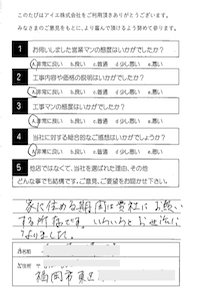 このたびはアイエス株式会社をご利用頂きありがとうございます。
みなさまのご意見をもとに、より喜んで頂けるよう努めて参ります。
1 お伺いしました営業マンの態度はいかがでしたか?
A.非常に良い B.良い C.普通 d.少し悪い e.悪い
2 工事内容や価格の説明はいかがでしたか?
A.非常に良い B.良い C.普通 d.少し悪い e.悪い
3 工事マンの態度はいかがでしたか?
A.非常に良い B.良い C.普通 d.少し悪い e.悪い
4 当社に対する総合的なご感想はいかがでしょうか?
A.非常に良い B.良い C.普通 d.少し悪い e.悪い
5 他店ではなくて、当社を選ばれた理由、その他
どんな事でも結構です。ご意見、ご要望をお聞かせ下さい。
家に住める期間は貴社にお願い
する所存です。いろいろとお世話に
なりました。
御名前
ご住所 〒
福岡市東区